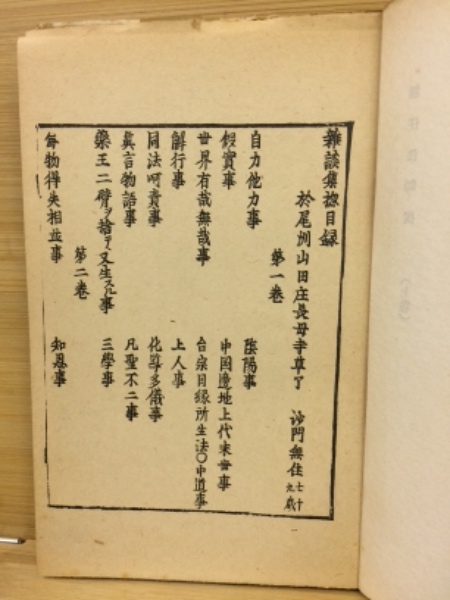 雜談集惣目録
於尾州山田庄長母寺草了 沙門無住七十九歳
第一卷
自力他力事 陰陽事
假實事 中国邊地上代末世事
世界有哉無哉事 台宗目録所生法〇中道事
解行事 上人事
同法呵責事 化導多儀事
真言物語事 凡聖不二事
藥王二臂ヲ捨テ又生スル事 三學事
第二卷
每物得失相並事 知恩事